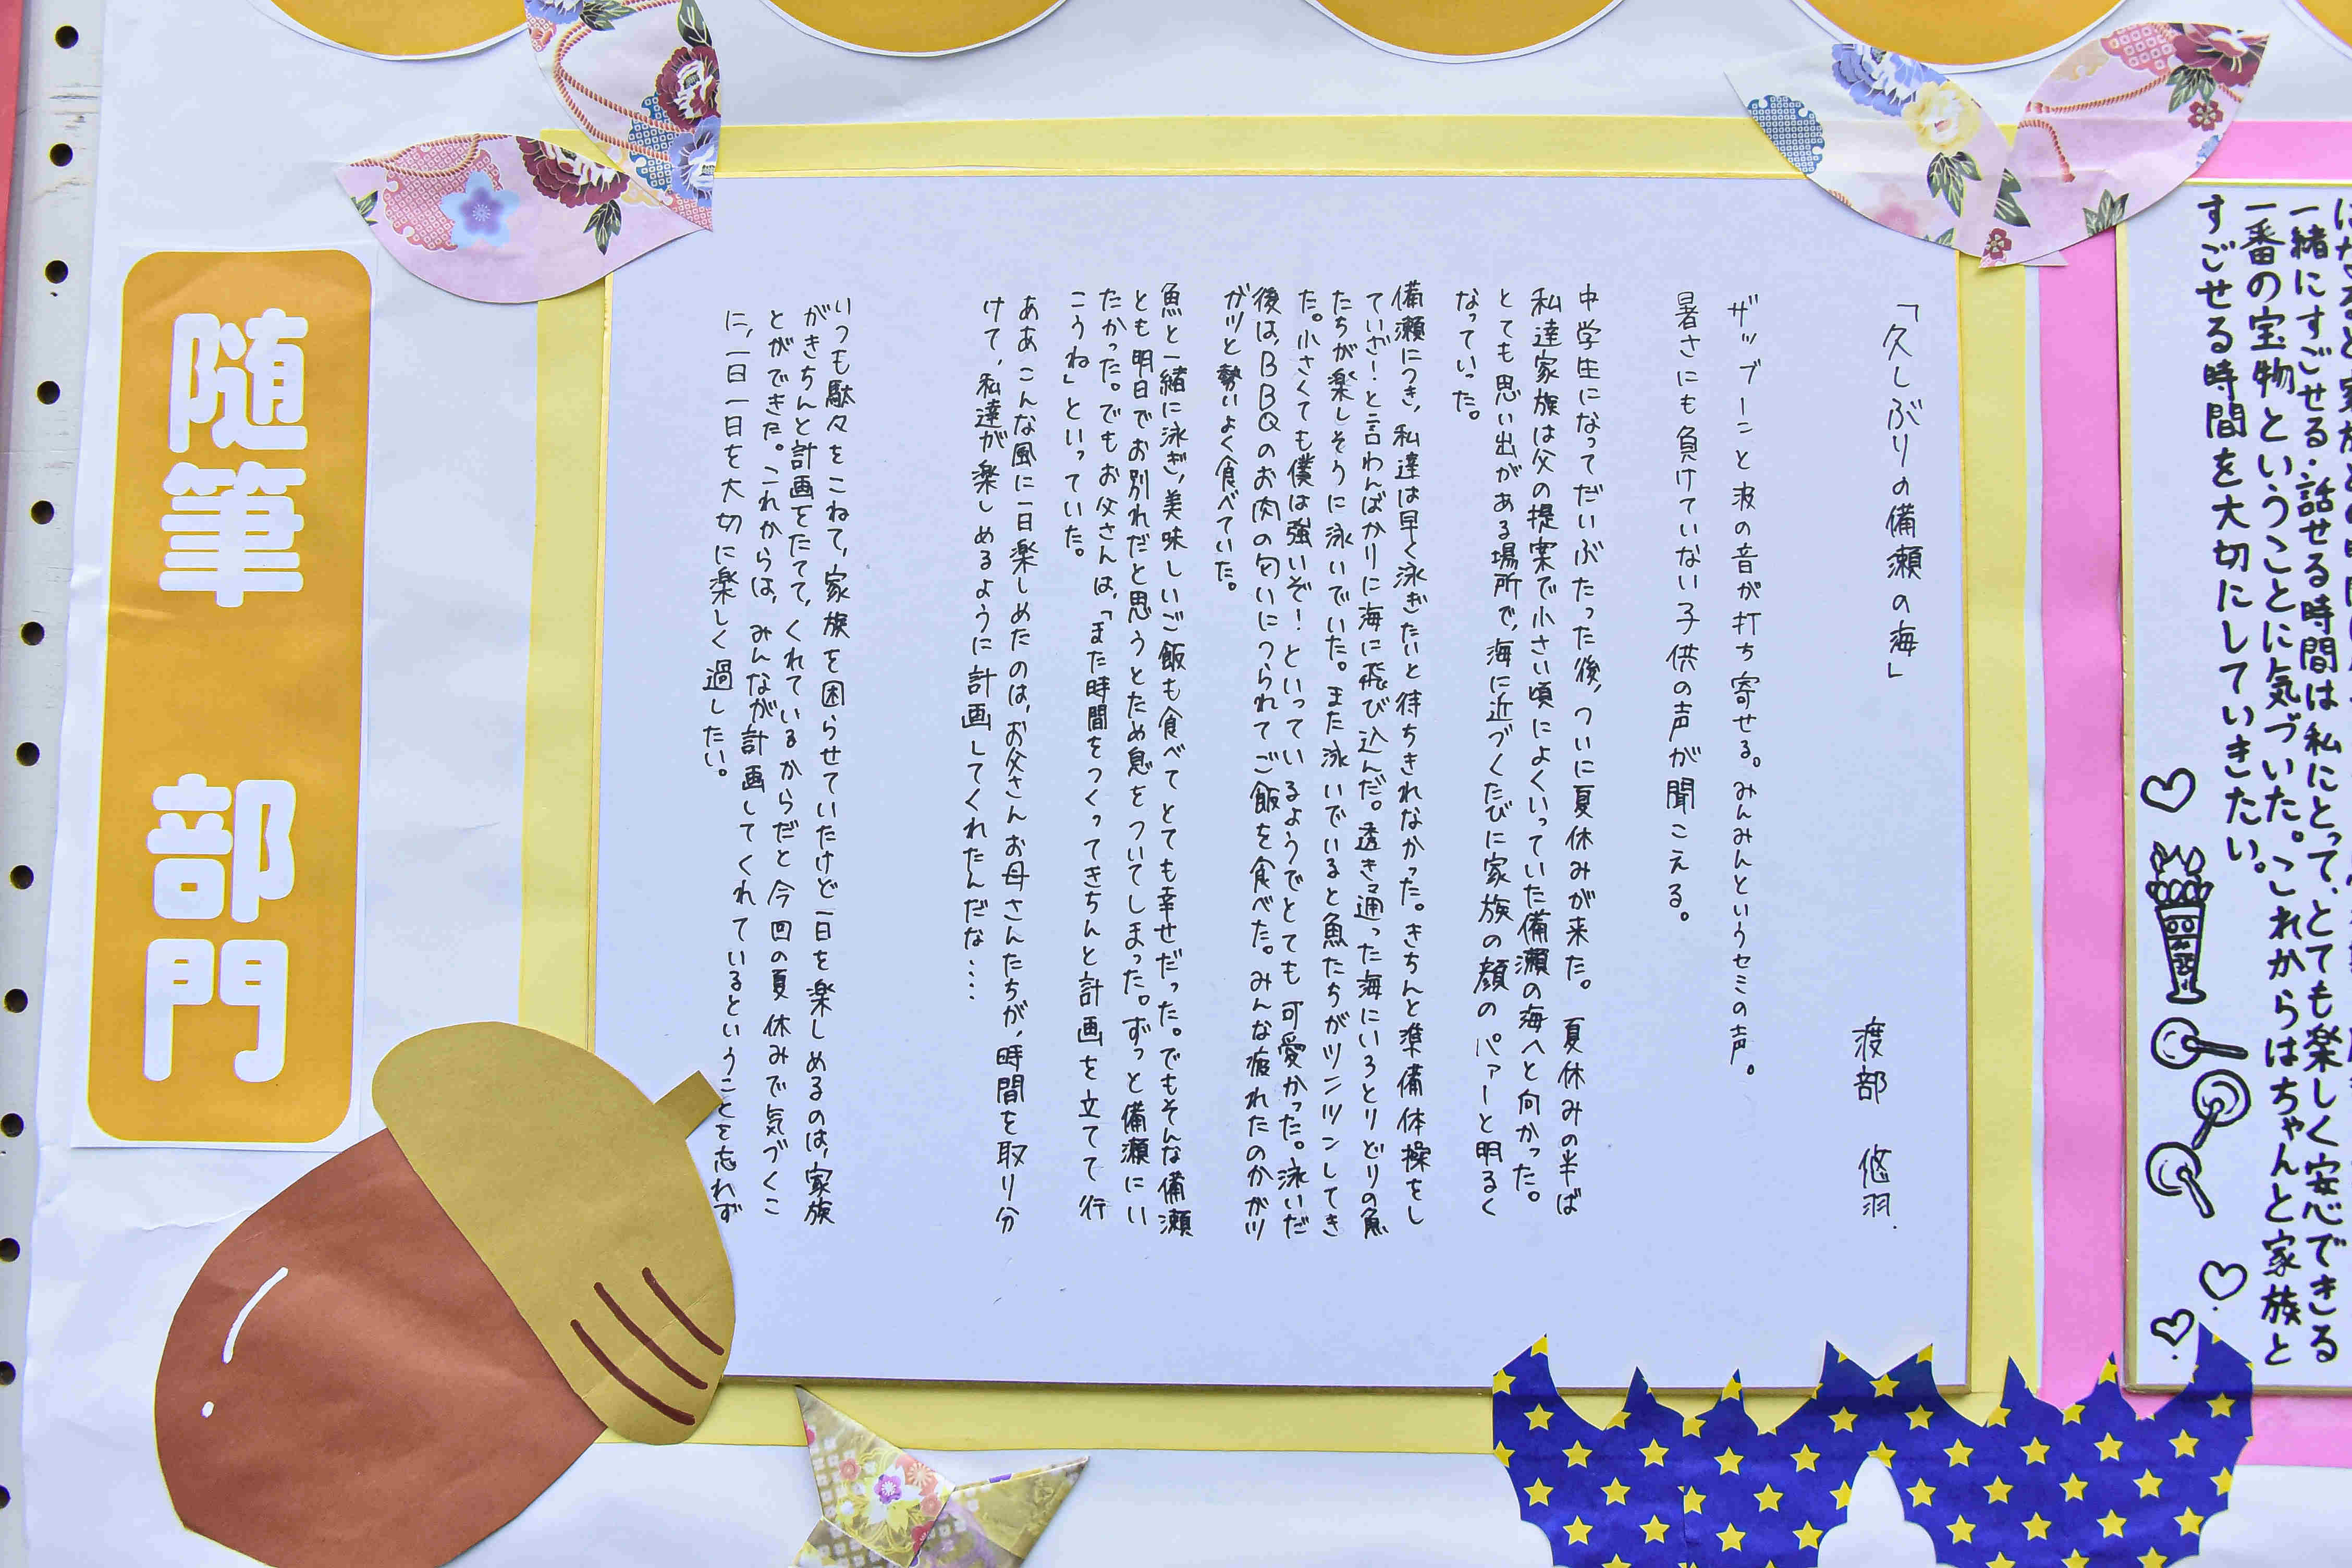 一緒にすごせる・話せる時間は私にとって、とても楽しく安心できる
一番の宝物ということに気づいた。これからはちゃんと家族と
すごせる時間を大切にしていきたい。
「久しぶりの備瀬の海」
渡部 悠羽.
ザップーンと波の音が打ち寄せる。みんみんというセミの声。
暑さにも負けていない子供の声が聞こえる。
中学生になってだいぶたった後、ついに夏休みが来た。夏休みの半ば
私達家族は父の提案で小さい頃によくいっていた備瀬の海へと向かった。
とても思い出がある場所で、海に近づくたびに家族の顔のパァーと明るく
なっていった。
備瀬につき、私達は早く泳ぎたいと待ちきれなかった。きちんと準備体操をし
ていざ!と言わんばかりに海に飛び込んだ。透き通った海にいろとりどりの魚
たちが楽しそうに泳いでいた。また泳いでいると魚たちがツンツンしてき
た。小さくても僕は強いぞ!といっているようでとても可愛かった。泳いだ
後は、BBQのお肉の匂いにつられてご飯を食べた。みんな疲れたのかガツ
ガツと勢いよく食べていた。
魚と一緒に泳ぎ、美味しいご飯も食べてとても幸せだった。でもそんな備瀬
とも明日でお別れだと思うとため息をついてしまった。ずっと備瀬にい
たかった。でもお父さんは、「また時間をつくってきちんと計画を立てて行
こうね」といっていた。
ああこんな風に一日楽しめたのは、お父さんお母さんたちが、時間を取り分
けて、私達が楽しめるように計画してくれたんだな....
いつも駄々をこねて、家族を困らせていたけど一日を楽しめるのは、家族
がきちんと計画をたてて、くれているからだと今回の夏休みで気づくこ
とができた。これからは、みんなが計画してくれているということを忘れず
に、一日一日を大切に楽しく過したい。
随筆 部門